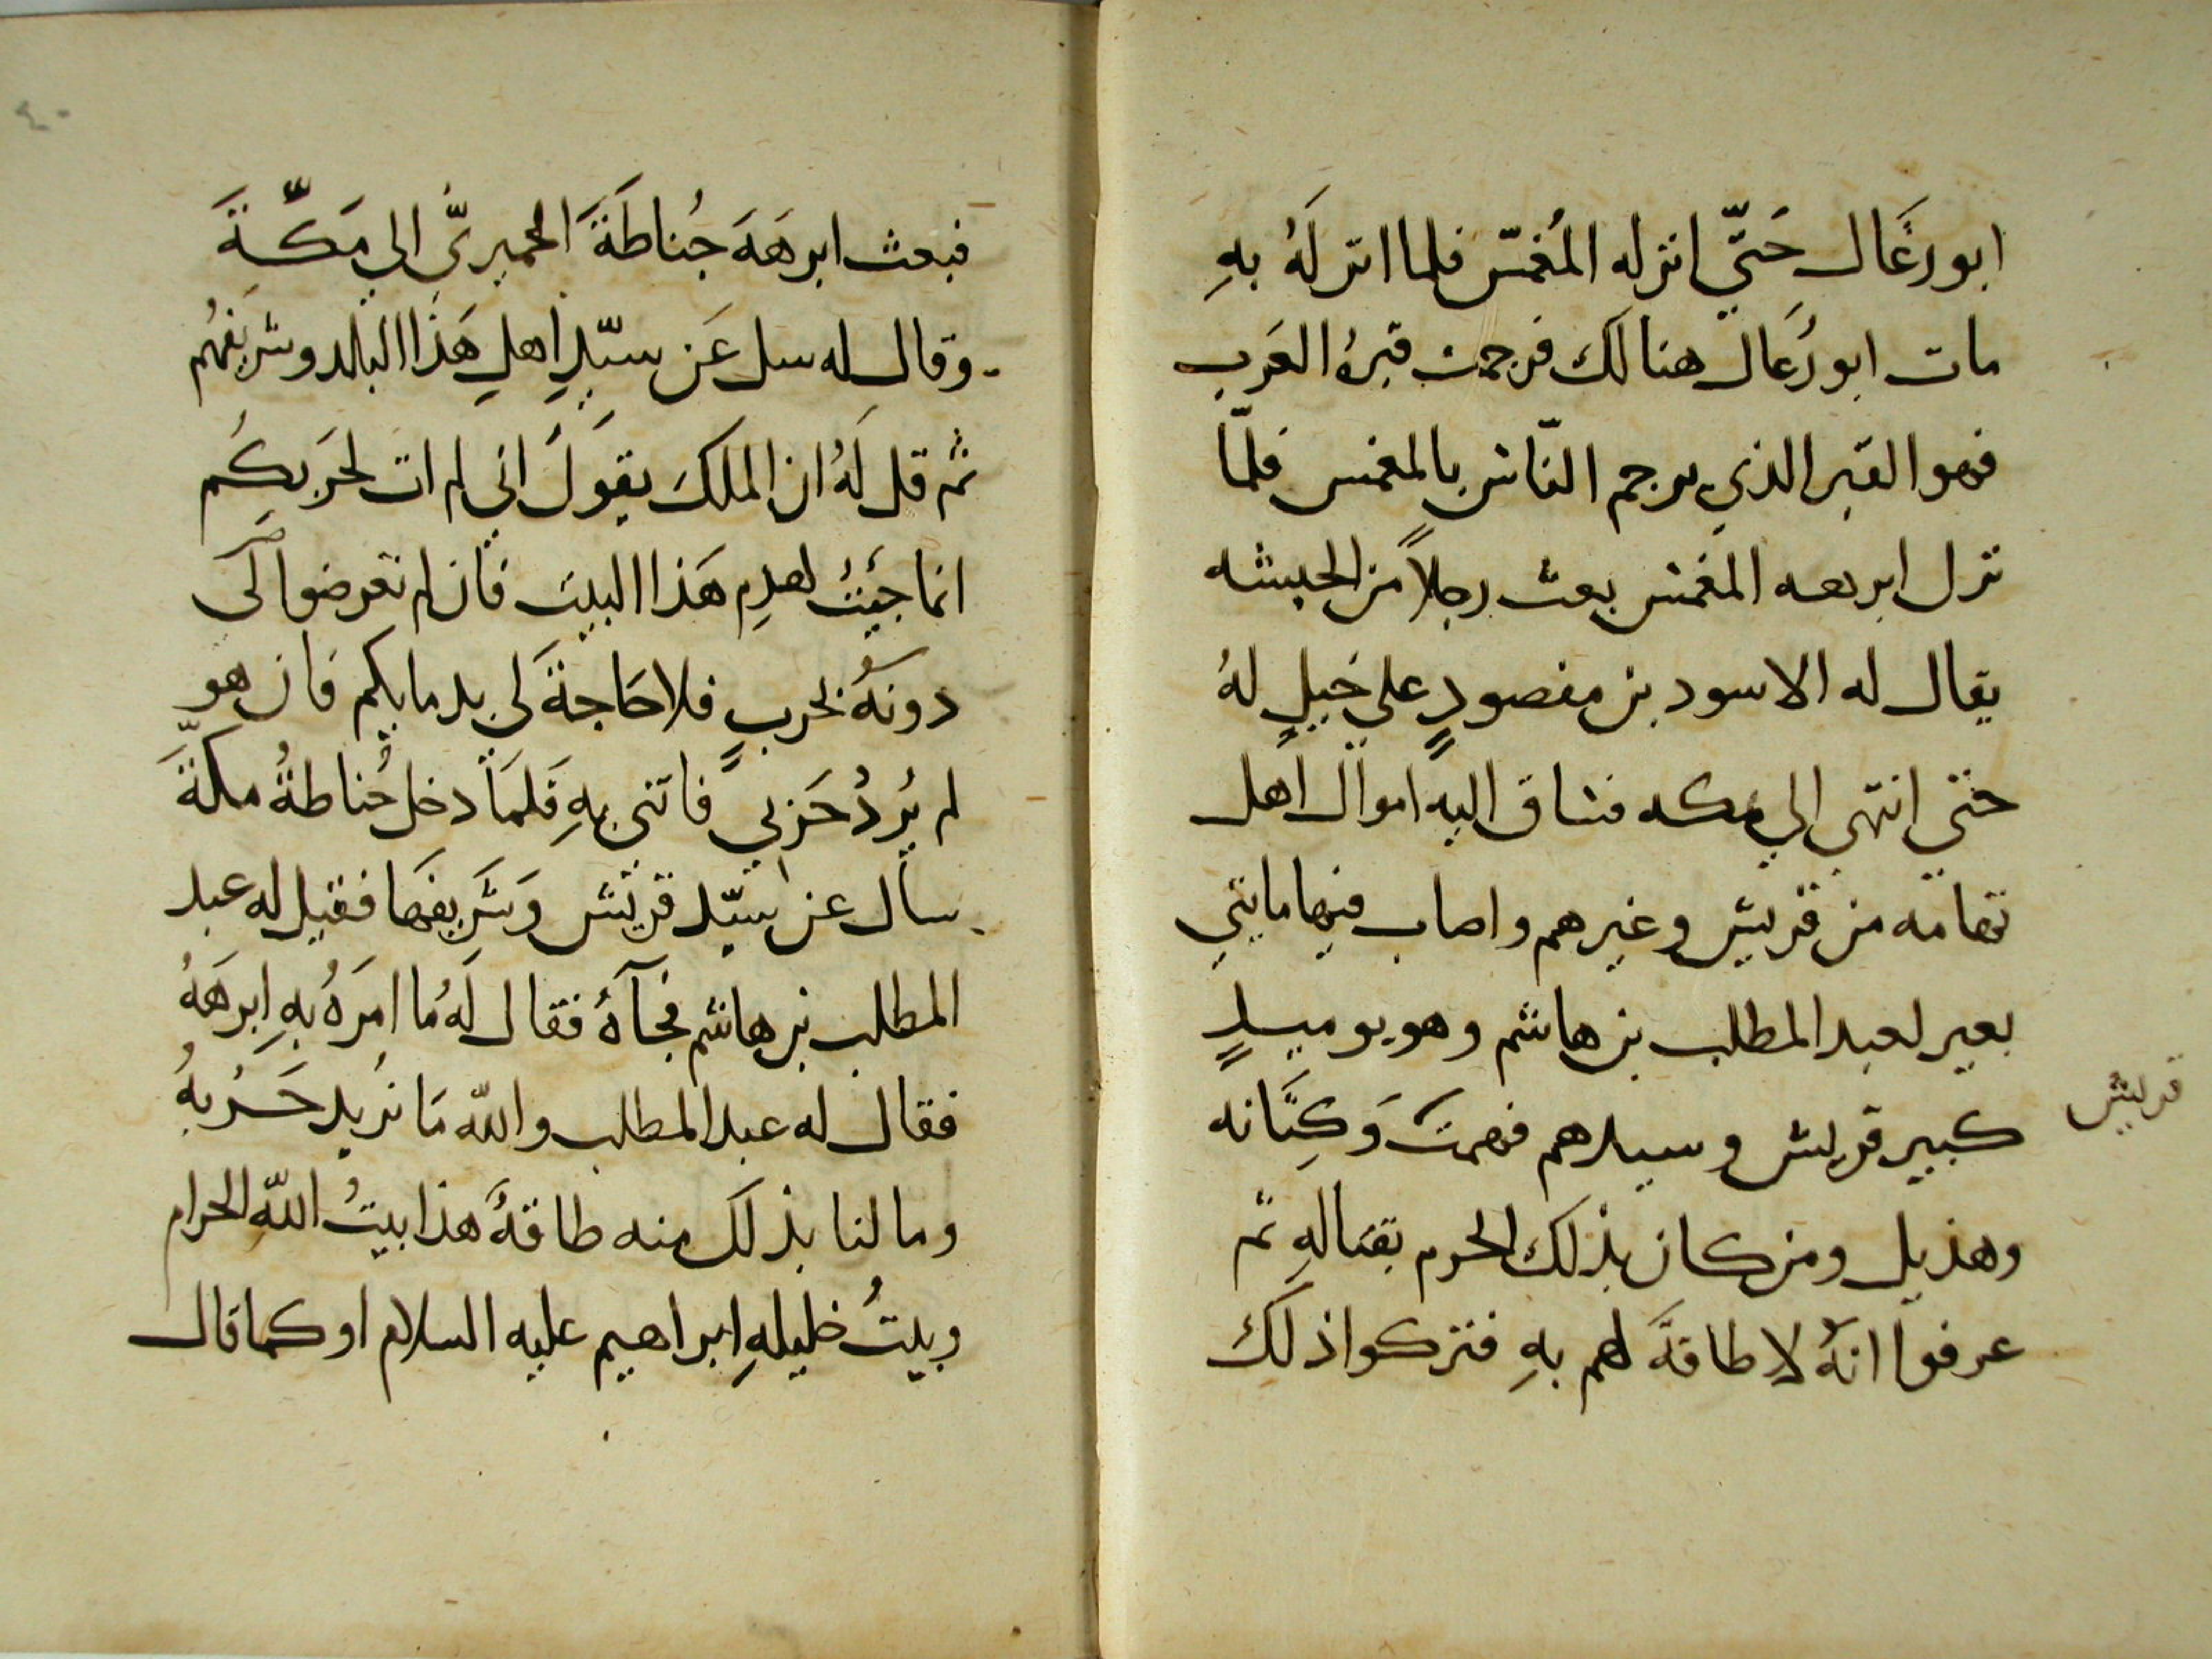 ابو رغَال حَتّي انزله المُغمّس فلما انزلَهُ بهِ
مات ابو رُغال هنالك فرجمت قبرهُ العَرب
فهو القبر الذي يرجم النّاس بالمغمس فلمّا
نزل ابرهه المغمس بعث رجلاً من الحبشه
يقال له الاسود بن مفصودٍ علي خيلٍ لهُ
حتي انتهي الي مكه فساق اليه اموال اهل
تهامه من قريش وغيرهم واصاب فيها مايتي
بعير لعبد المطلب بن هاشم وهو يوميدٍ
كبير قريش وسيدهم فهمتَ وَكِنَانه
قريش
وهذيل ومن كان بذلك الحرم بقتالهِ ثم
عرفوا انهُ لا طاقةَ لهم بهِ فتركوا ذلك
٤٠
فبعث ابرهَهَ حُناطَةَ الحميريَّ الي مَكّةَ
وقال له سل عَن سيّدِ اهلِ هَذا البلد وشريفهُم
ثم قل لَهُ ان الملكَ يقولَ اني لم ات لحَربكُم
انما جيَتُ لهدِم هَذا البيتِ فان لم تعرضوا لي
دونهُ بحربٍ فلا حَاجةَ لي بدمايكم فان هو
لم يُردُ حَربي فاتني بهِ فَلمَا دخل حُناطةُ مكةَّ
سأل عن سيّد قريش وَشَريفهَا فقيل له عبد
المطلب بن هاشم فجآهُ فقال لَهُ ما امرَهُ بهِ ابرَهَهُ
فقال له عبد المطلب واللّه مَا نُريد حَرْبهُ
وما لنا بذلك منه طاقةُ هذا بيتُ اللّه الحرام
وبيتُ خليلهِ ابراهيم عليه السلام او كما قال